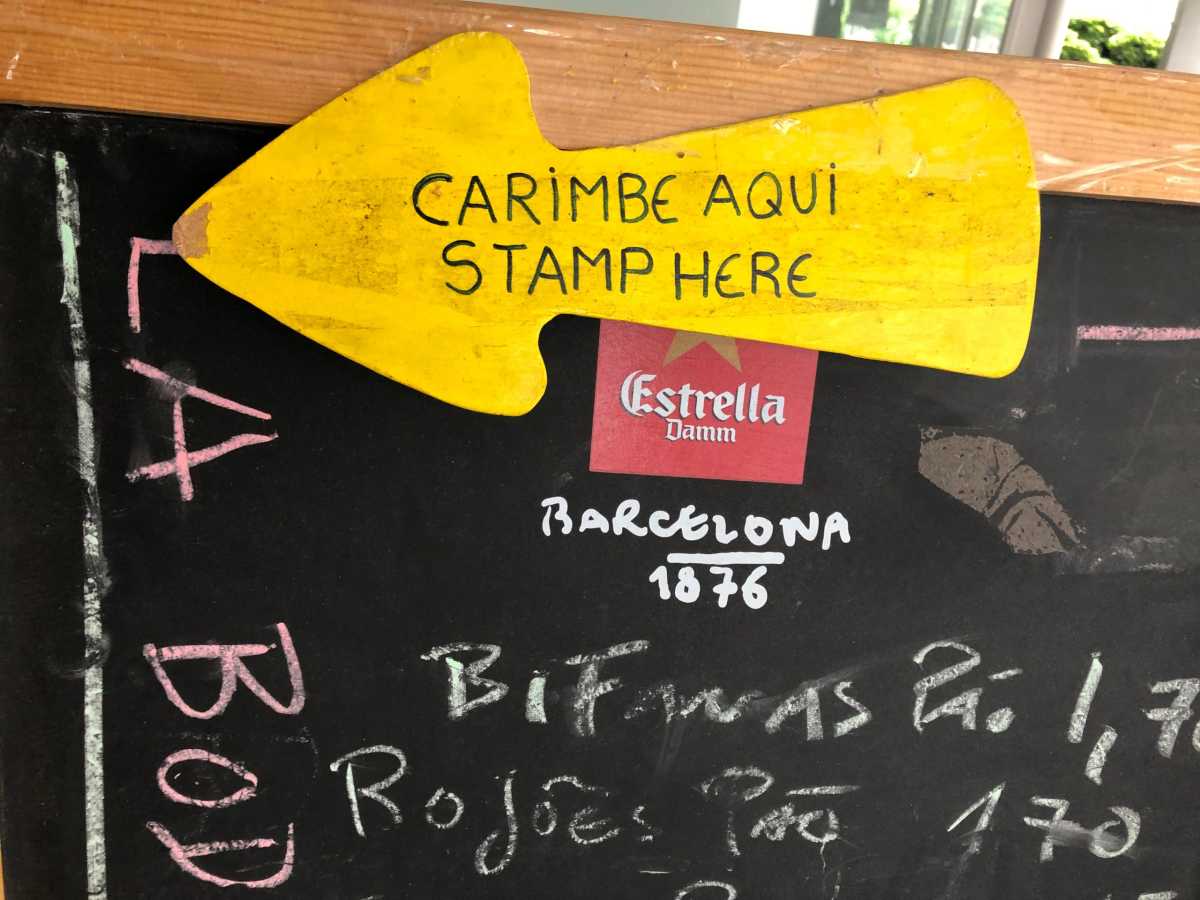 CARIMBE AQUI
STAMP HERE
Estrella
Damm
BARCELONA
1876
LA
BOD
Bifanas Pão 1,70
Rojões Pão 170